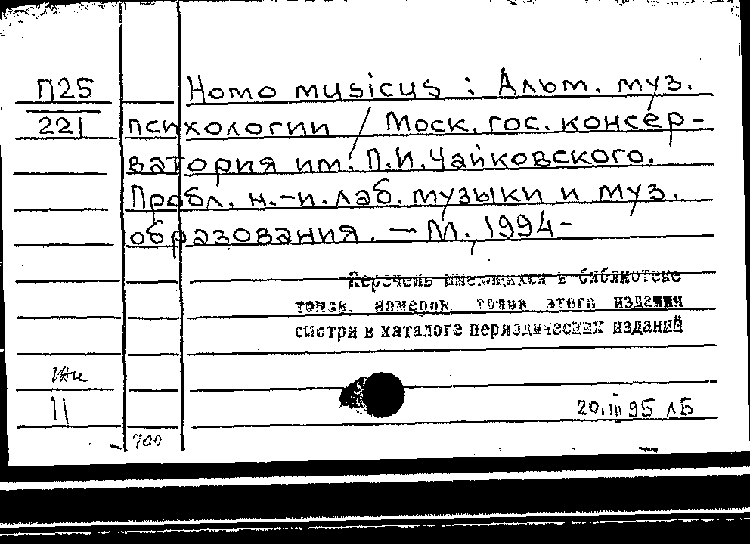 П25 Homo musicus : Альм. муз.
221 психологии / Моск. гос. консер-
ватория им. П.И.Чайковского.
Пробл. н.-и. лаб. музыки и муз.
образования. — М., 1994-
Перечень имеющихся в библиотеке
томов, номеров, точки этого издания
смотри в каталоге периодических изданий
11
20.III 95 ЛБ
700